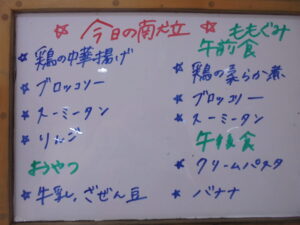 今日の献立
鶏の中華揚げ
ブロッコリー
スーミータン
リンゴ
おやつ
牛乳、ざぜん豆
ももぐみ
午前食
鶏の柔らか煮
ブロッコリー
スーミータン
午後食
クリームパスタ
バナナ